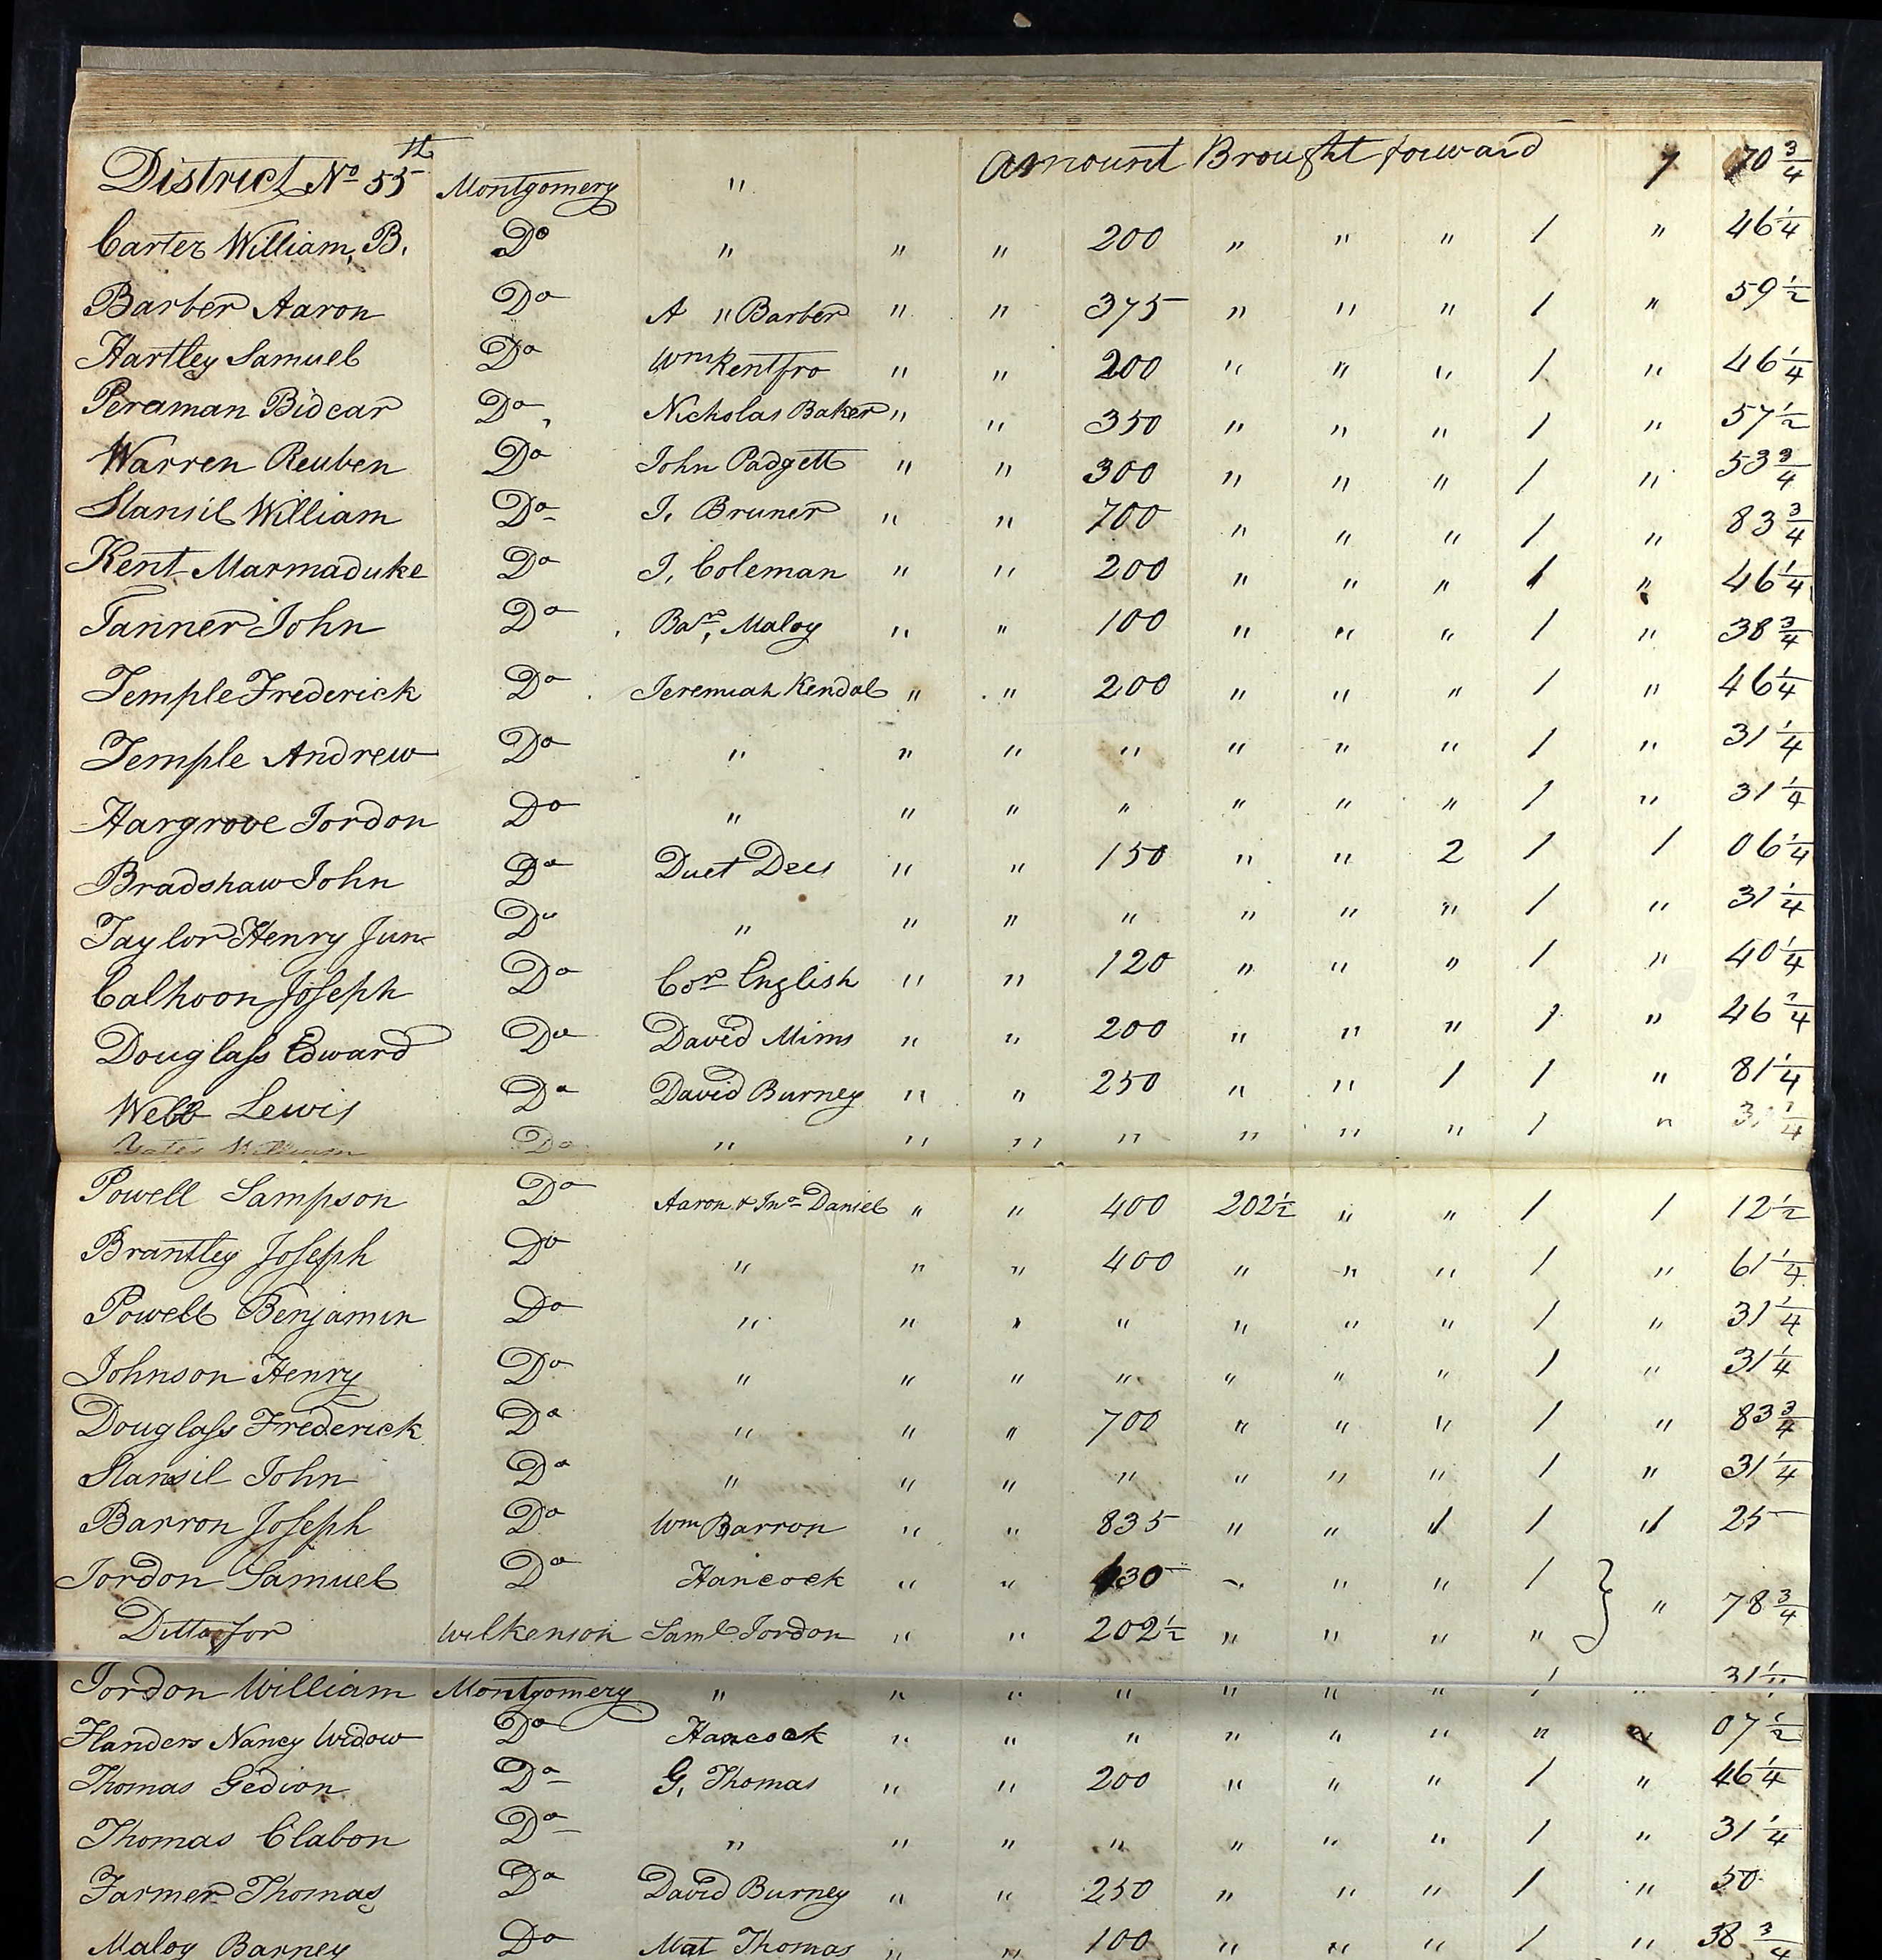 District No 55th Montgomery " Amount Brought forward 7 70 3/4
Carter William, B. Do " " " 200 " " " 1 " 46 1/4
Barber Aaron Do A " Barber " " 375 " " " 1 " 59 1/2
Hartley Samuel Do Wm Rentfro " " 200 " " " 1 " 46 1/4
Peraman Bidcar Do Nicholas Baker " " 350 " " " 1 " 57 1/2
Warren Reuben Do John Padgett " " 300 " " " 1 " 53 3/4
Stansil William Do J. Bruner " " 700 " " " 1 " 83 3/4
Kent Marmaduke Do J. Coleman " " 200 " " " 1 " 46 1/4
Tanner John Do Bar, Maloy " " 100 " " " 1 " 38 3/4
Temple Frederick Do Jeremiah Kendal " " 200 " " " 1 " 46 1/4
Temple Andrew Do " " " " " " " 1 " 31 1/4
Hargrove Jordon Do " " " " " " " 1 " 31 1/4
Bradshaw John Do Duet Dees " " 150 " " 2 1 1 06 1/4
Taylor Henry Jun Do " " " " " " " 1 " 31 1/4
Calhoon Joseph Do Cor English " " 120 " " " 1 " 40 1/4
Douglass Edward Do David Mims " " 200 " " " 1 " 46 1/4
Webb Lewis Do David Burney " " 250 " " 1 1 " 81 1/4
Yates William Do " " " " " " " 1 " 31 1/4
Powell Sampson Do Aaron & Jno Daniel " " 400 202 1/2 " " 1 1 12 1/2
Brantley Joseph Do " " " 400 " " " 1 " 61 1/4
Powell Benjamin Do " " " " " " " 1 " 31 1/4
Johnson Henry Do " " " " " " " 1 " 31 1/4
Douglass Frederick Do " " " 700 " " " 1 " 83 3/4
Stansil John Do " " " " " " " 1 " 31 1/4
Barron Joseph Do Wm Barron " " 835 " " 1 1 1 25
Jordon Samuel Do Hancock " " 430 " " " 1
Ditto for Wilkenson Saml Jordon " " 202 1/2 " " " " } " 78 3/4
Jordon William Montgomery " " " " " " " 1 " 31 1/4
Flanders Nancy Widow Do Hancock " " " " " " " " 07 1/2
Thomas Gedion Do G. Thomas " " 200 " " " 1 " 46 1/4
Thomas Clabon Do " " " " " " " 1 " 31 1/4
Farmer Thomas Do David Burney " " 250 " " " 1 " 50
Maloy Barney Do Mat Thomas " " 100 " " " 1 " 38 3/4